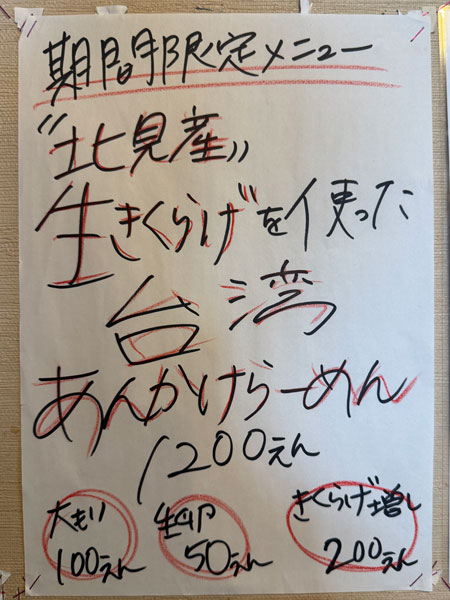 期間限定メニュー
"北見産"
生きくらげを使った
台湾
あんかけらーめん
1200えん
大もり
100えん
生卵
50えん
きくらげ増し
200えん